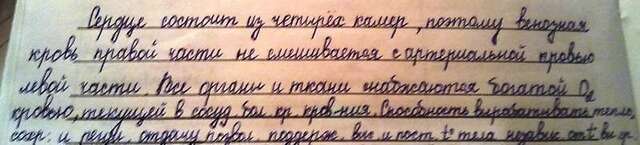 Сердце состоит из четырёх камер, поэтому венозная
кровь правой части не смешивается с артериальной кровью
левой части. Все органы и ткани снабжаются богатой O₂
кровью, текущей в сосуд. бол. кр. кров-ния. Способность вырабатывать тепло,
сохр. и регул. отдачу позвол. поддерж. выс. и пост. t° тела независ. от t° вн. ср.